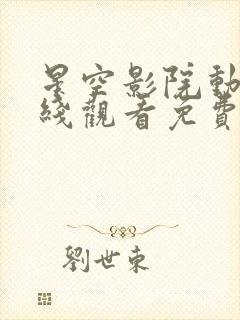 星空影院動
綫觀看免費
劉世東